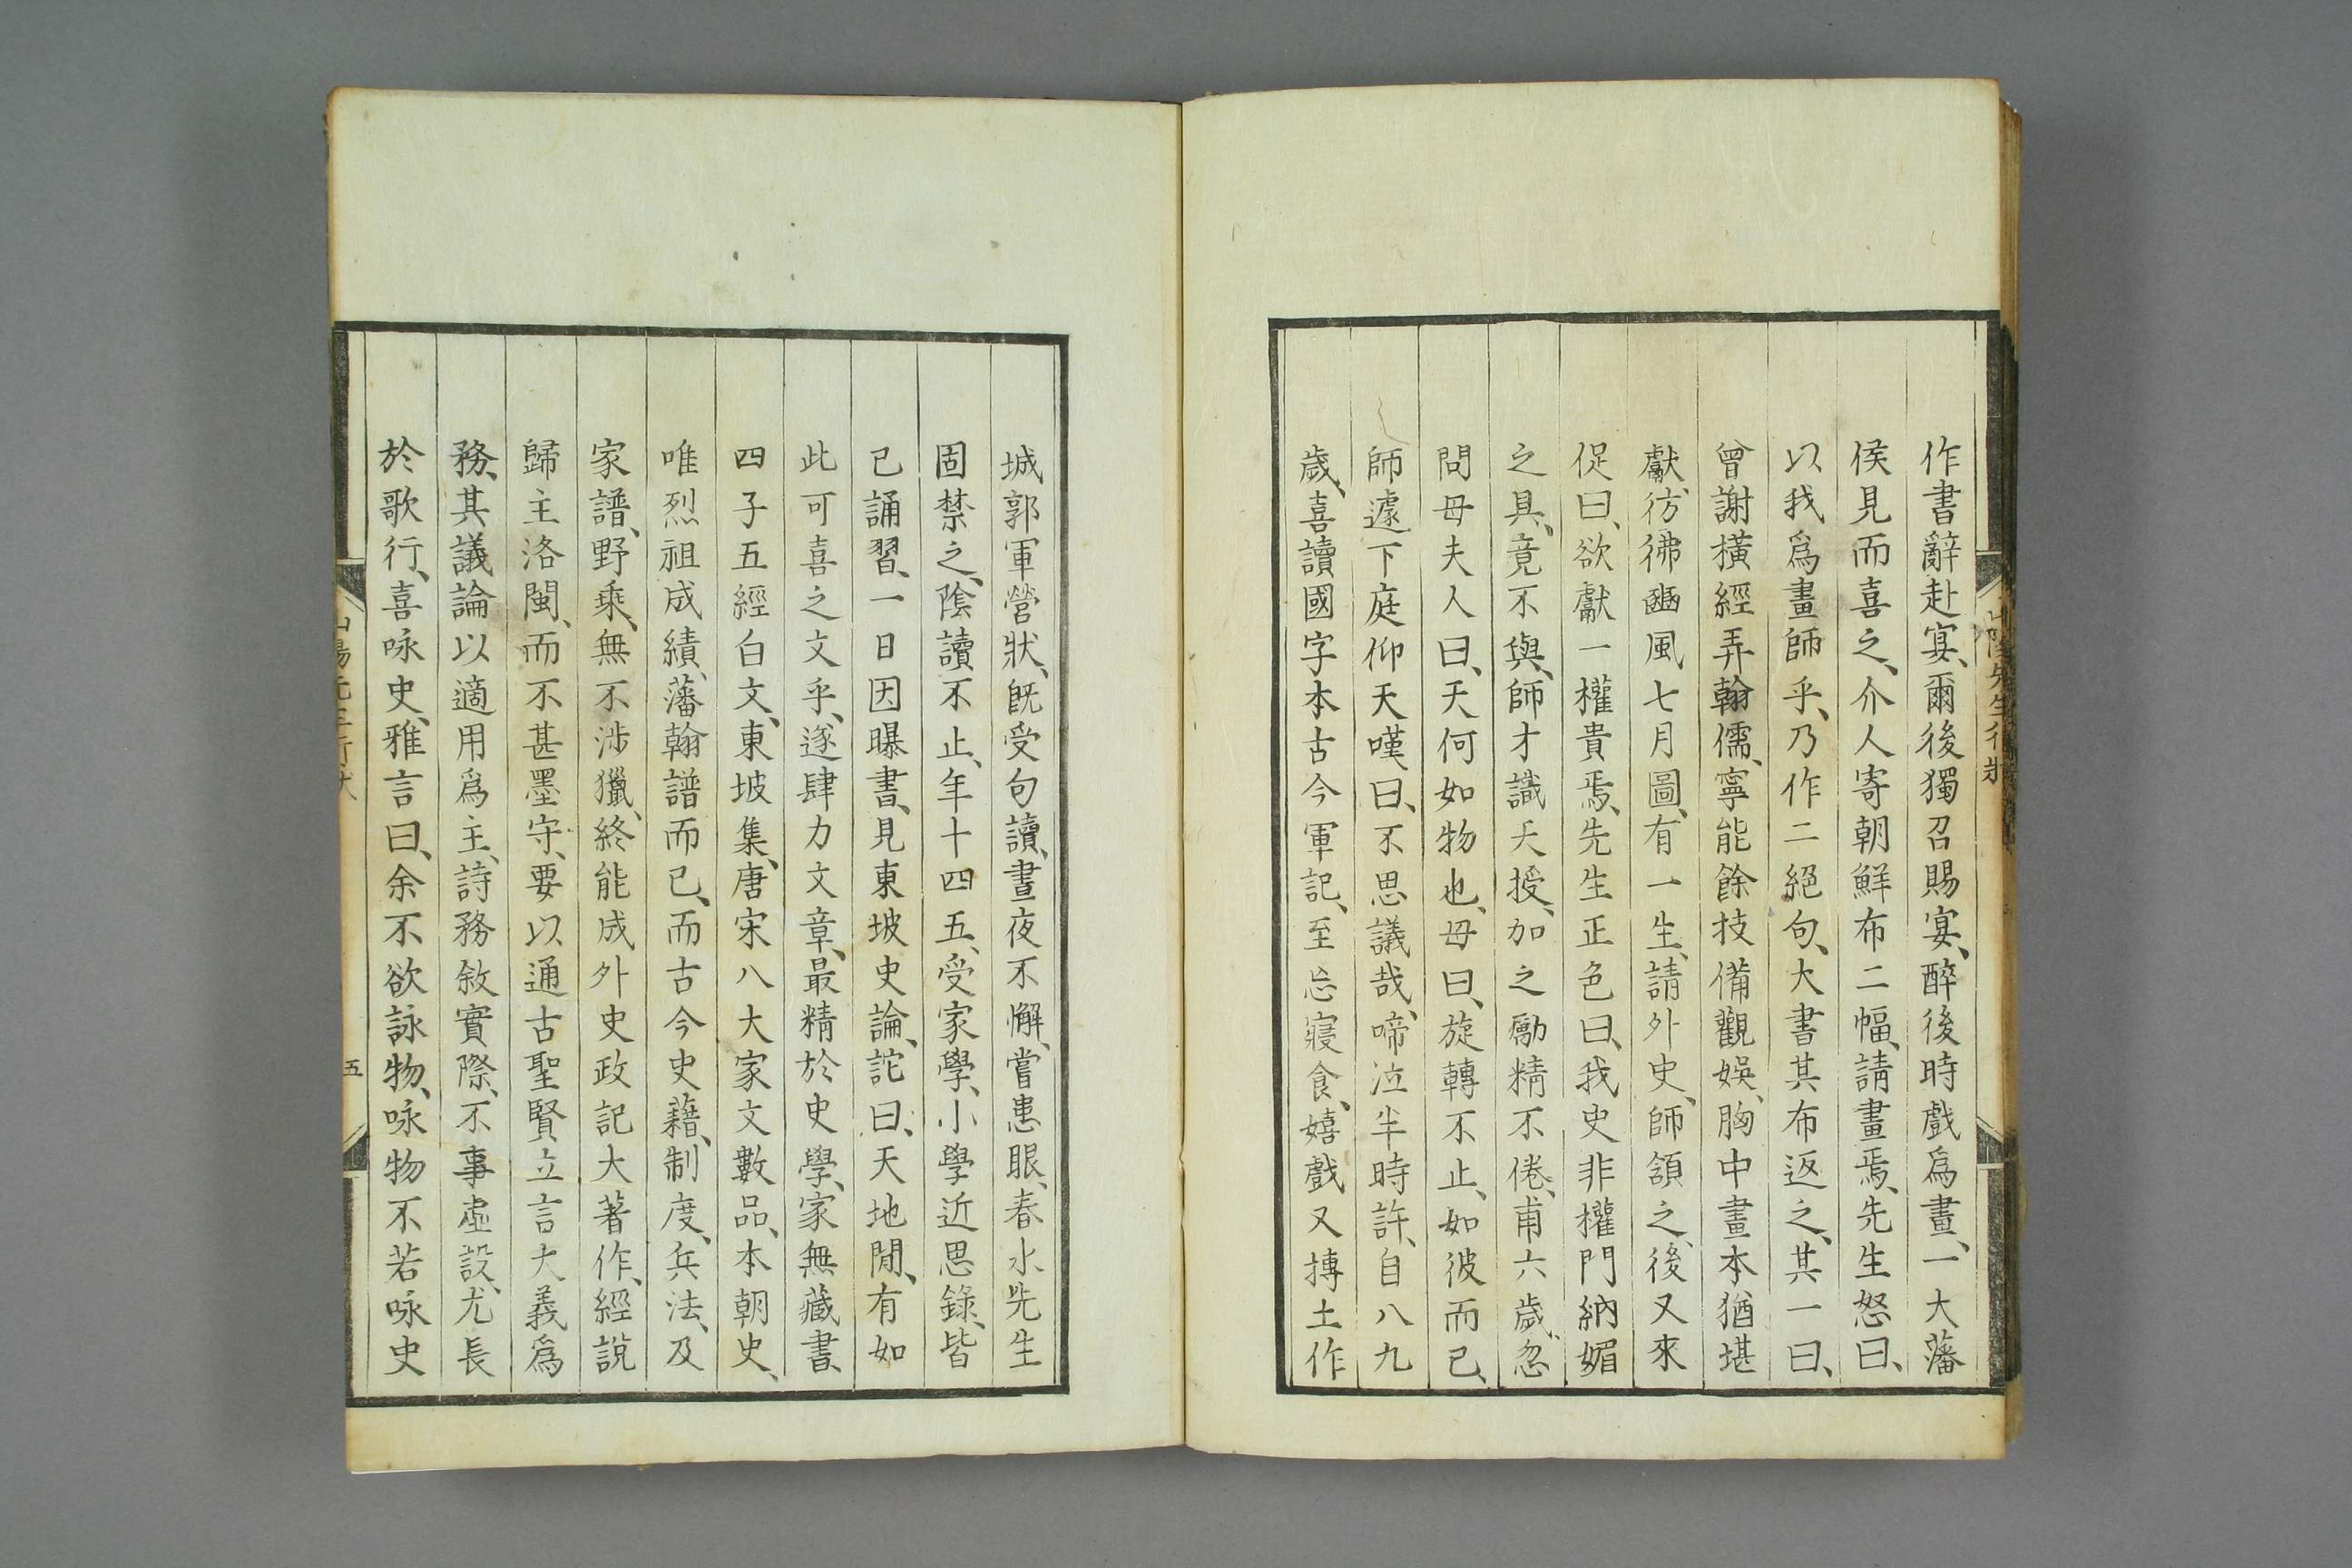 作書辭赴宴、爾後獨召賜宴、醉後時戲爲畫、一大藩
侯見而喜之、介人寄朝鮮布二幅、請畫焉、先生怒曰、
以我爲畫師乎、乃作二絕句、大書其布返之、其一曰、
曾謝橫經弄翰儒、寧能餘技備觀娛、胸中畫本猶堪
獻、彷彿豳風七月圖、有一生、請外史、師頷之、後又來
促曰、欲獻一權貴焉、先生正色曰、我史非權門納媚
之具、竟不與、師才識天授、加之勵精不倦、甫六歲、忽
問母夫人曰、天何如物也、母曰、旋轉不止、如彼而已、
師遽下庭仰天嘆曰、不思議哉、啼泣半時許、自八九
歲、喜讀國字本古今軍記、至忘寢食、嬉戲又摶土作
城郭軍營狀、既受句讀、晝夜不懈、嘗患眼、春水先生
固禁之、陰讀不止、年十四五、受家學、小學近思錄、皆
已誦習、一日因曝書、見東坡史論、詫曰、天地間、有如
此可喜之文乎、遂肆力文章、最精於史學、家無藏書、
四子五經白文、東坡集、唐宋八大家文數品、本朝史、
唯烈祖成績、藩翰譜而已、而古今史藉、制度、兵法、及
家譜、野乘、無不涉獵、終能成外史政記大著作、經說
歸主洛閩、而不甚墨守、要以通古聖賢立言大義爲
務、其議論以適用爲主、詩務敘實際、不事虛設、尤長
於歌行、喜咏史、雅言曰、余不欲詠物、咏物不若咏史
五